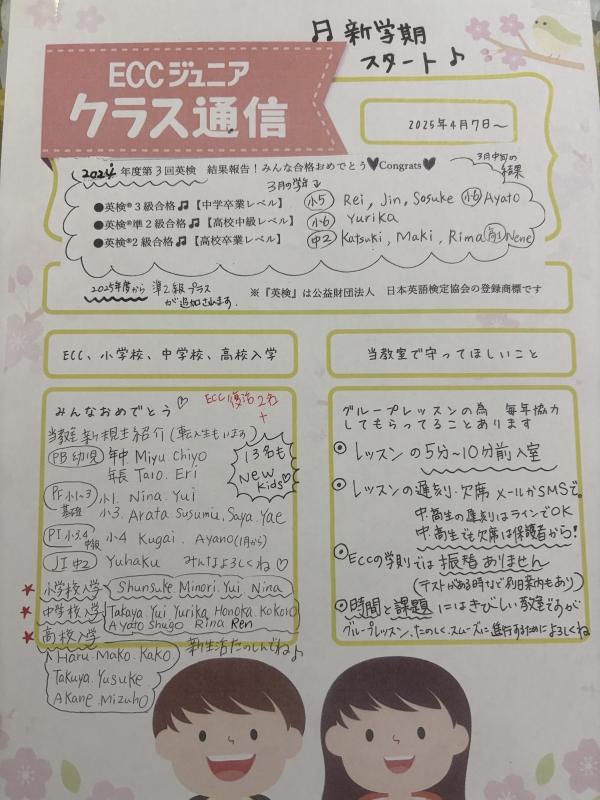 ♫ 新学期
スタート♪
ECCジュニア
クラス通信
2025年4月7日〜
2024年度第3回英検 結果報告！みんな合格おめでとう♥Congrats♥
3月中旬の
結果
3月の学年↓
●英検®3級合格♫【中学卒業レベル】 小5 Rei, Jin, Sosuke 小6 Ayato
●英検®準2級合格♫【高校中級レベル】 小6 Yurika
●英検®2級合格♫【高校卒業レベル】 中2 Katsuki, Maki, Rima 高1 Nene
2025年度から 準2級プラス
が追加されます.
※『英検』は公益財団法人 日本英語検定協会の登録商標です
ECC、小学校、中学校、高校入学
みんなおめでとう♡
ECC復活2名
+
当教室新規生紹介(転入生もいます)
13名も
New
Kids♡
PB幼児 年中 Miyu Chiyo
年長 Taro. Eri
PF小1~3
基礎
小1. Nina. Yui
小3. Arata. Susumu, Saya. Yae
PI小3.4
中級
小4 Kugai. Ayano(1月から)
JI 中2 Yuhaku みんなよろしくね♡
★小学校入学 Shunsuke. Minori. Yui. Nina
★中学校入学 Takaya. Yui Yurika. Honoka. Kokoro
Ayato Shugo Rina Ren
★高校入学 新生活たのしんでね♪
Haru. Mako. Kako
Takuya. Yusuke
Akane. Mizuho
当教室で守ってほしいこと
グループレッスンの為 毎年協力
してもらってることあります
◎レッスンの5分~10分前入室
◎レッスンの遅刻.欠席 メールかSMSで.
中.高生の遅刻はラインでOK
中.高生でも欠席は保護者から!
◎ECCの学則では振替ありません
(テストがある時など別日案内もあり)
◎時間と課題にはきびしい教室ですが
グループレッスン.たのしく.スムーズに進行するためによろしくね